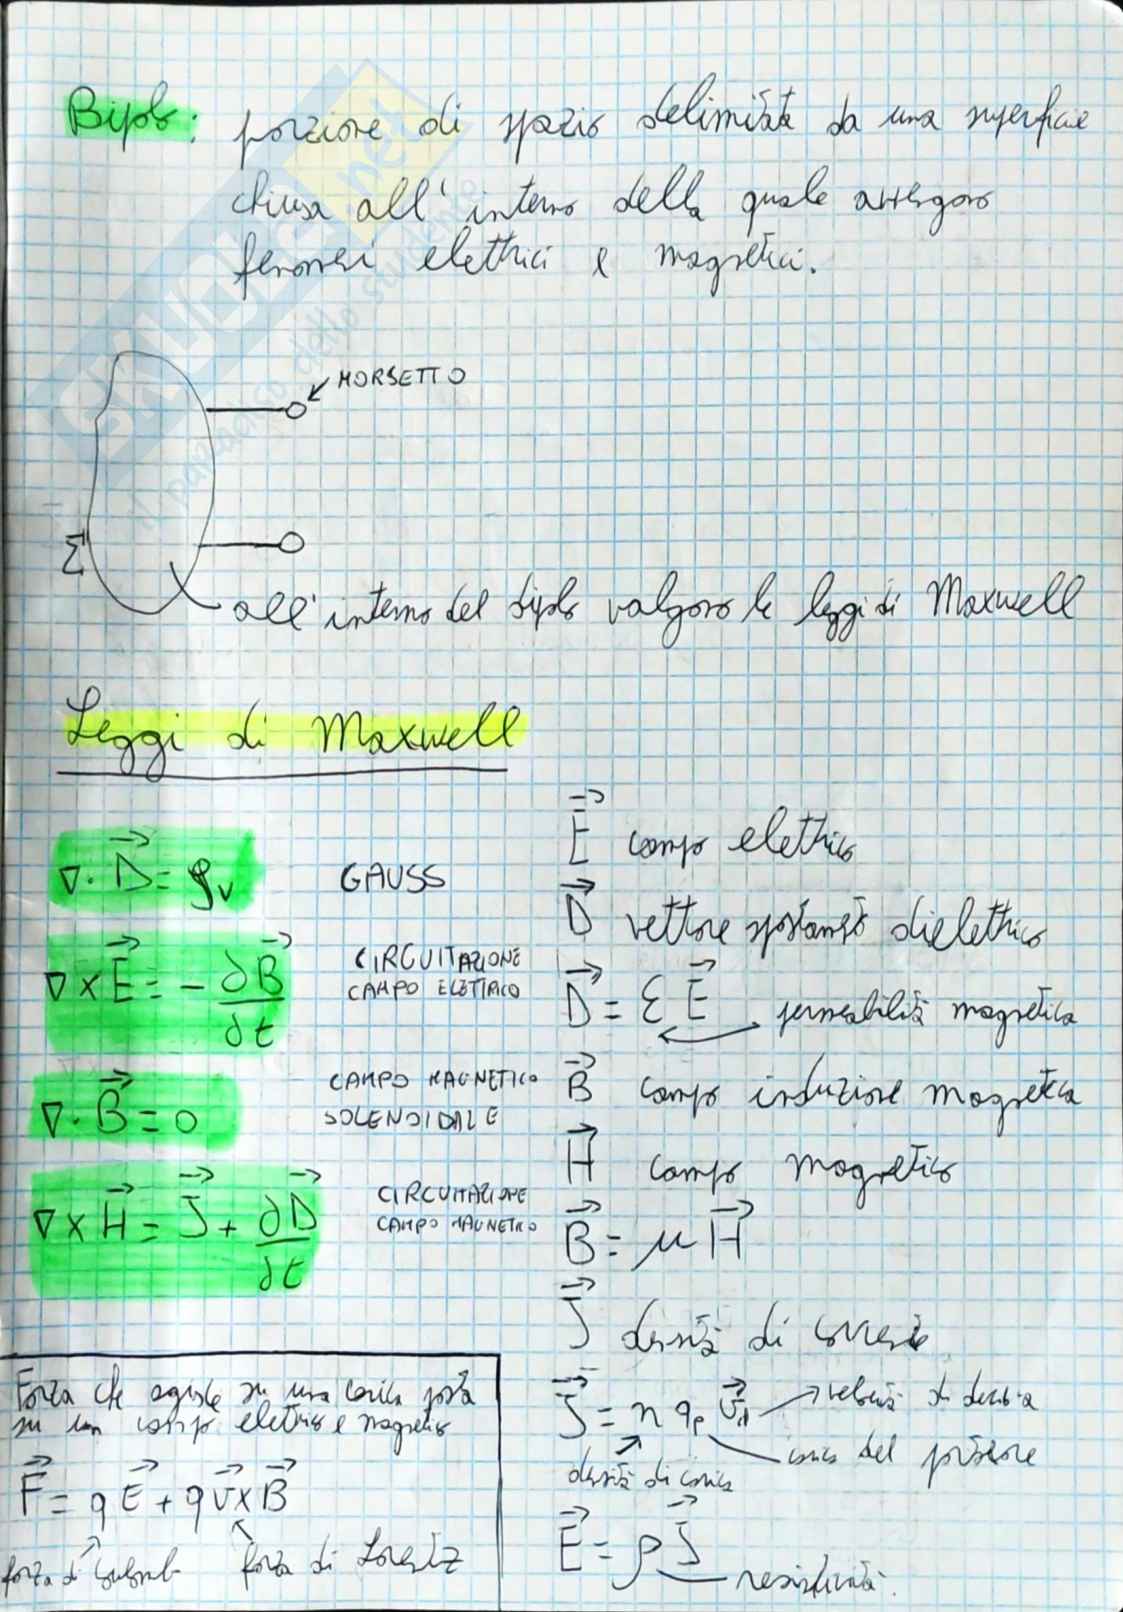 Bipolo: porzione di spazio delimitata da una superficie
chiusa all'interno della quale avvengono
fenomeni elettrici e magnetici.
SKUOLA.net
il paradiso dello studente
MORSETTO
Σ
all'interno del bipolo valgono le leggi di Maxwell
Leggi di Maxwell
∇·D⃗ = ρᵥ GAUSS
∇×E⃗ = -∂B⃗/∂t CIRCUITAZIONE
CAMPO ELETTRICO
∇·B⃗ = 0 CAMPO MAGNETICO
SOLENOIDALE
∇×H⃗ = J⃗ + ∂D⃗/∂t CIRCUITAZIONE
CAMPO MAGNETICO
E⃗ campo elettrico
D⃗ vettore spostamento dielettrico
D⃗ = εE⃗ permeabilità magnetica
B⃗ campo induzione magnetica
H⃗ campo magnetico
B⃗ = μH⃗
J⃗ densità di corrente
J⃗ = n qₚ v⃗d velocità di deriva
carica del portatore
densità di carica
E⃗ = ρJ⃗
resistività.
Forza che agisce su una carica posta
su un campo elettrico e magnetico
F⃗ = qE⃗ + qv⃗×B⃗
forza di Coulomb forza di Lorentz